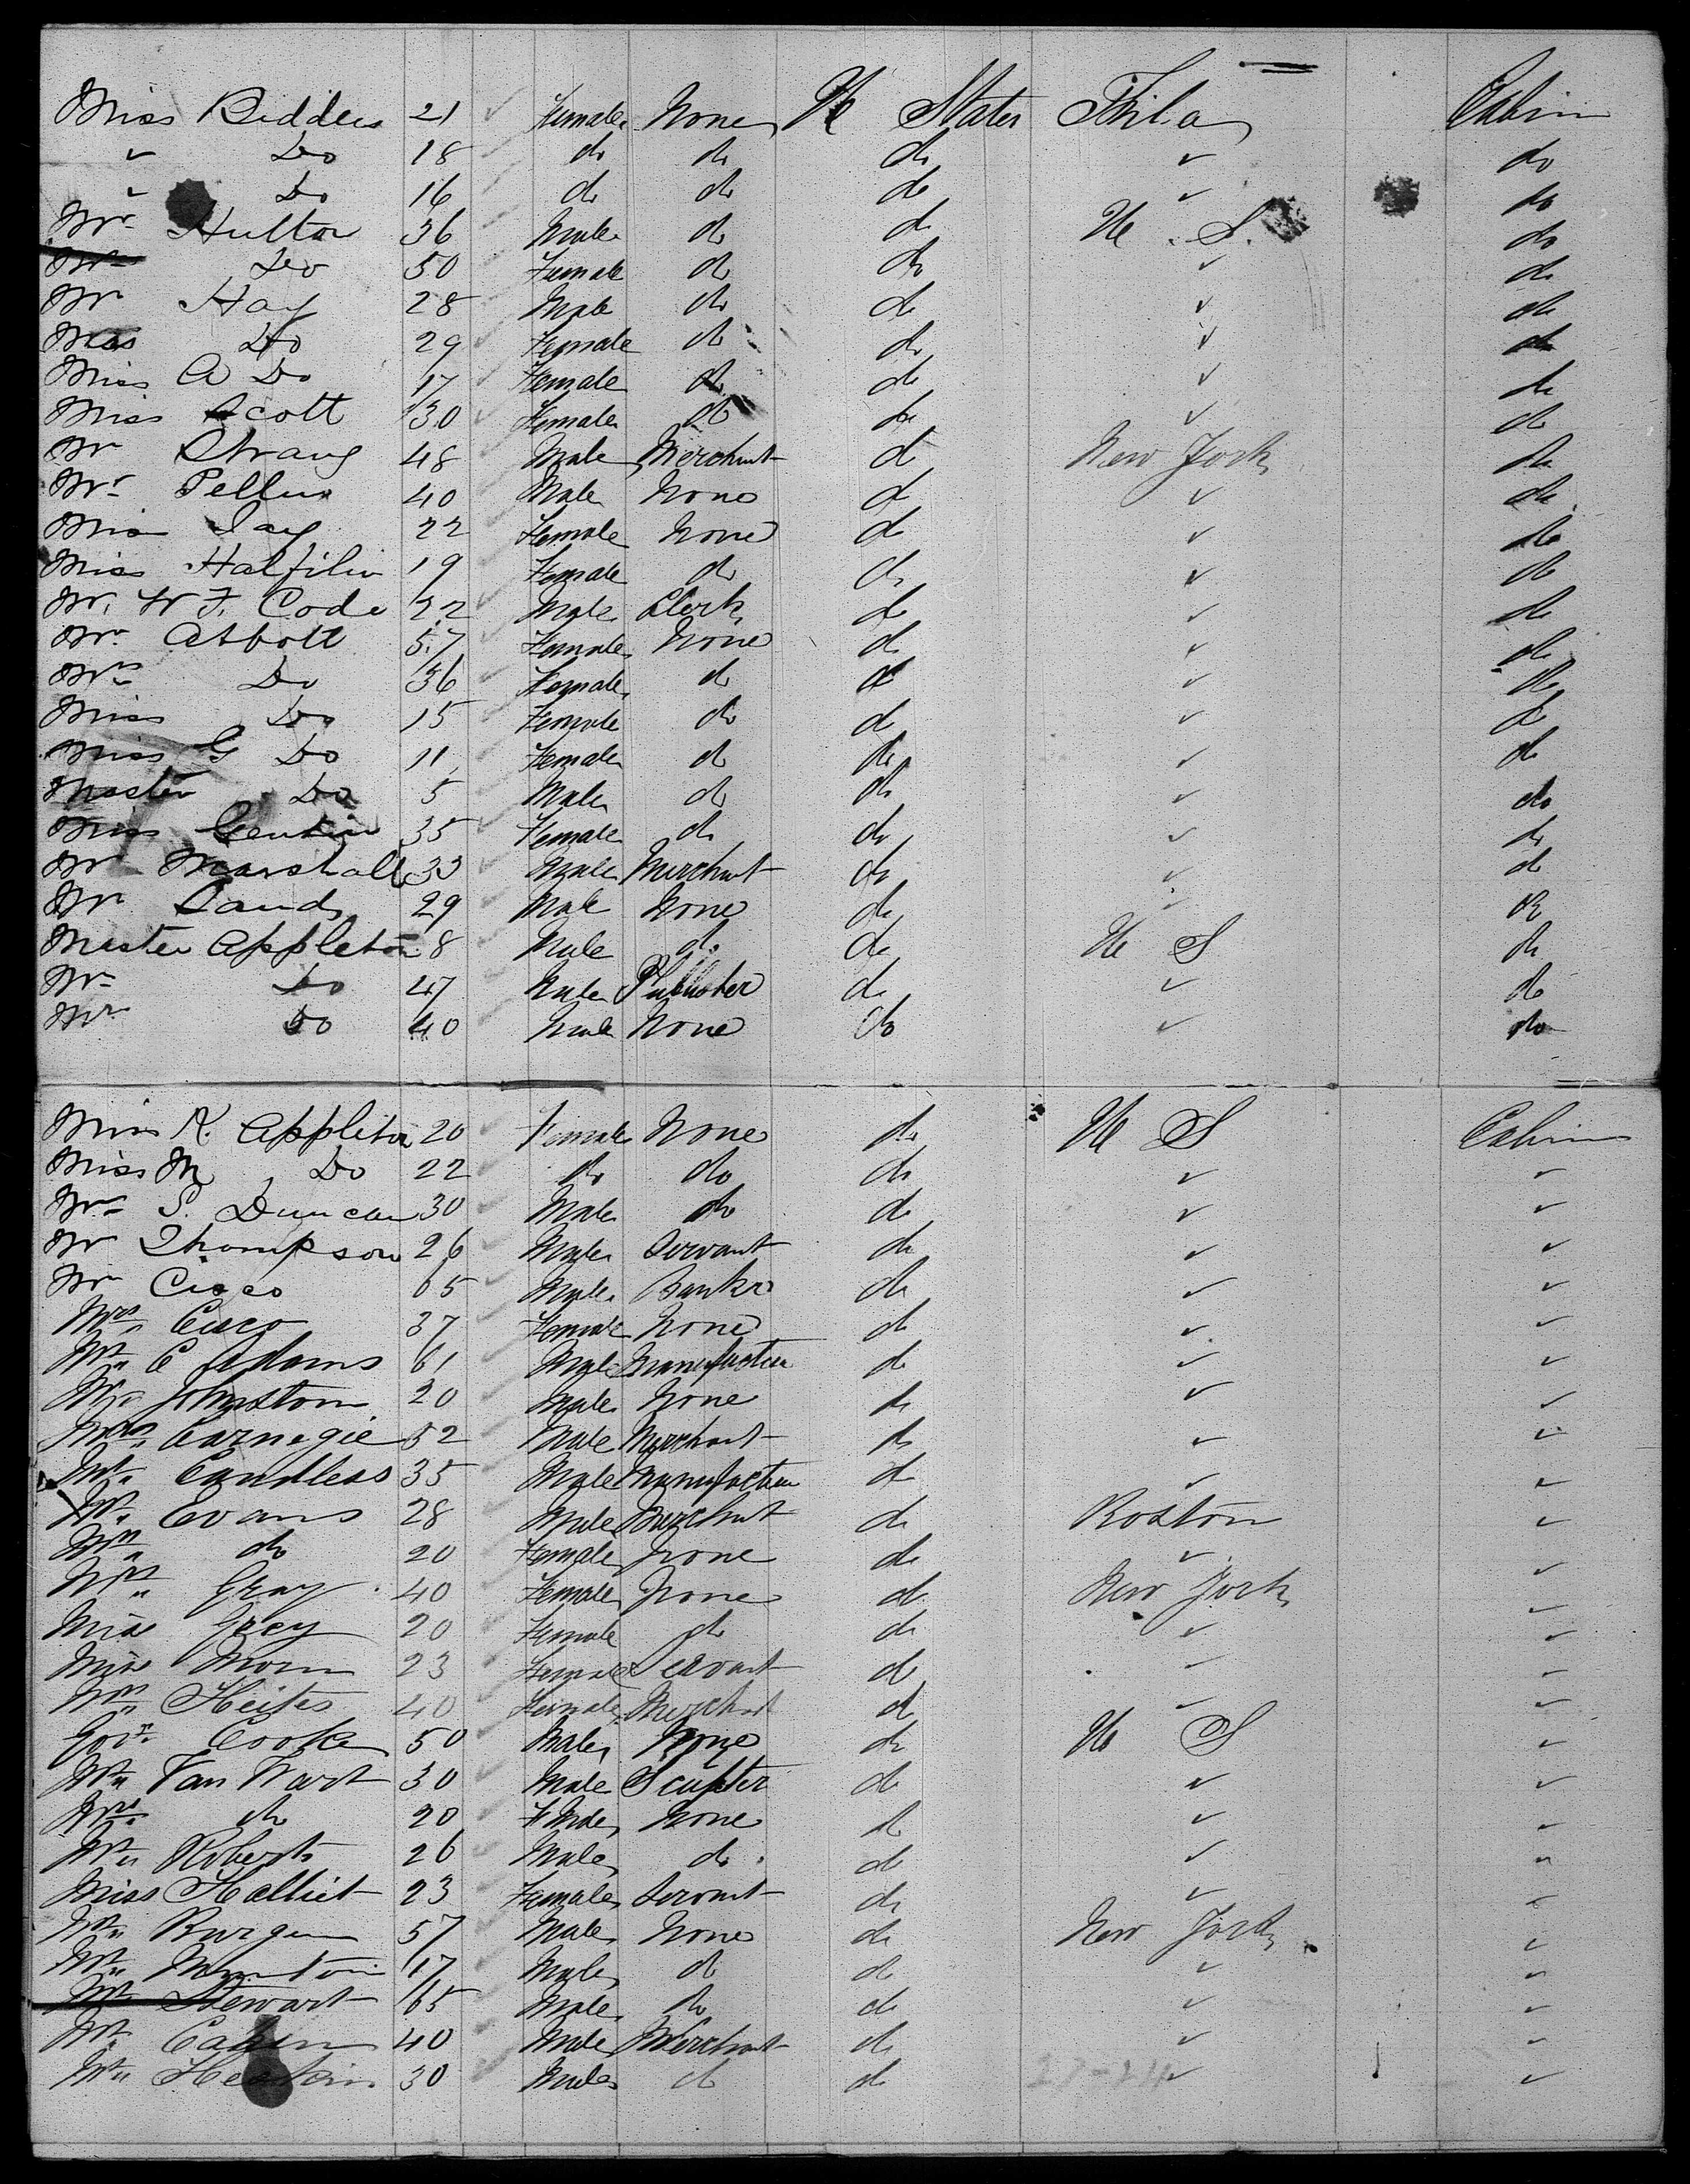 Miss Biddle 21 ✓ Female None U States Phila Cabin
✓ Do 18 ✓ do do do ✓ do
✓ Do 16 ✓ do do do ✓ do
Mr Hutton 36 ✓ Male do do U. S. do
Mrs Do 50 ✓ Female do do ✓ do
Mr Hay 28 ✓ Male do do ✓ do
Mrs Do 29 ✓ Female do do ✓ do
Miss A Do 17 ✓ Female do do ✓ do
Miss Scott 30 ✓ Female do do ✓ do
Mr Strang 48 ✓ Male Merchant do New York do
Mr Pellus 40 ✓ Male None do ✓ do
Miss Jay 22 ✓ Female None do ✓ do
Miss 19 ✓ Female do do ✓ do
Mr. W F. Code 22 ✓ Male Clerk do ✓ do
Mr Abbott 57 ✓ Female None do ✓ do
Mrs Do 36 ✓ Female do do ✓ do
Miss Do 15 ✓ Female do do ✓ do
Miss G Do 11 ✓ Female do do ✓ do
Master Do 5 ✓ Male do do ✓ do
Miss 35 ✓ Female do do ✓ do
Mr Marshall 33 ✓ Male Merchant do ✓ do
Mr Sands 29 ✓ Male None do ✓ do
Master Appleton 8 ✓ Male do do U S do
Mr Do 47 ✓ Male Publisher do ✓ do
Mr Do 40 ✓ Male None do ✓ do
Miss K. Appleton 20 ✓ Female None do U S Cabin
Miss M Do 22 ✓ do do do ✓ ✓
Mr S. Duncan 30 ✓ Male do do ✓ ✓
Mr Thompson 26 ✓ Male Servant do ✓ ✓
Mr Cisco 65 ✓ Male Banker do ✓ ✓
Mrs Cisco 37 ✓ Female None do ✓ ✓
Mr C Adams 61 ✓ Male Manufacture do ✓ ✓
Mr Johnston 20 ✓ Male None do ✓ ✓
Mr Carnegie 52 ✓ Male Merchant do ✓ ✓
Mr Candless 35 ✓ Male Manufacture do ✓ ✓
Mr Evans 28 ✓ Male Merchant do Boston ✓
Mrs do 20 ✓ Female None do ✓ ✓
Mrs Gray 40 ✓ Female None do New York ✓
Miss Grey 20 ✓ Female do do ✓ ✓
Miss 23 ✓ Female Servant do ✓ ✓
Mrs 40 ✓ Female Merchant do ✓ ✓
Govr Cooke 50 ✓ Male None do U S ✓
Mr Van Wart 30 ✓ Male Sculpter do ✓ ✓
Mrs do 20 ✓ None do ✓ ✓
Mr Roberts 26 ✓ Male do do ✓ ✓
Miss Halliet 23 ✓ Female Servant do ✓ ✓
Mr 57 ✓ Male None do New York ✓
Mr 17 ✓ Male do do ✓ ✓
Mr Stewart 65 ✓ Male do do ✓ ✓
Mr 40 ✓ Male Merchant do ✓ ✓
Mr 30 ✓ Male do do ✓ ✓